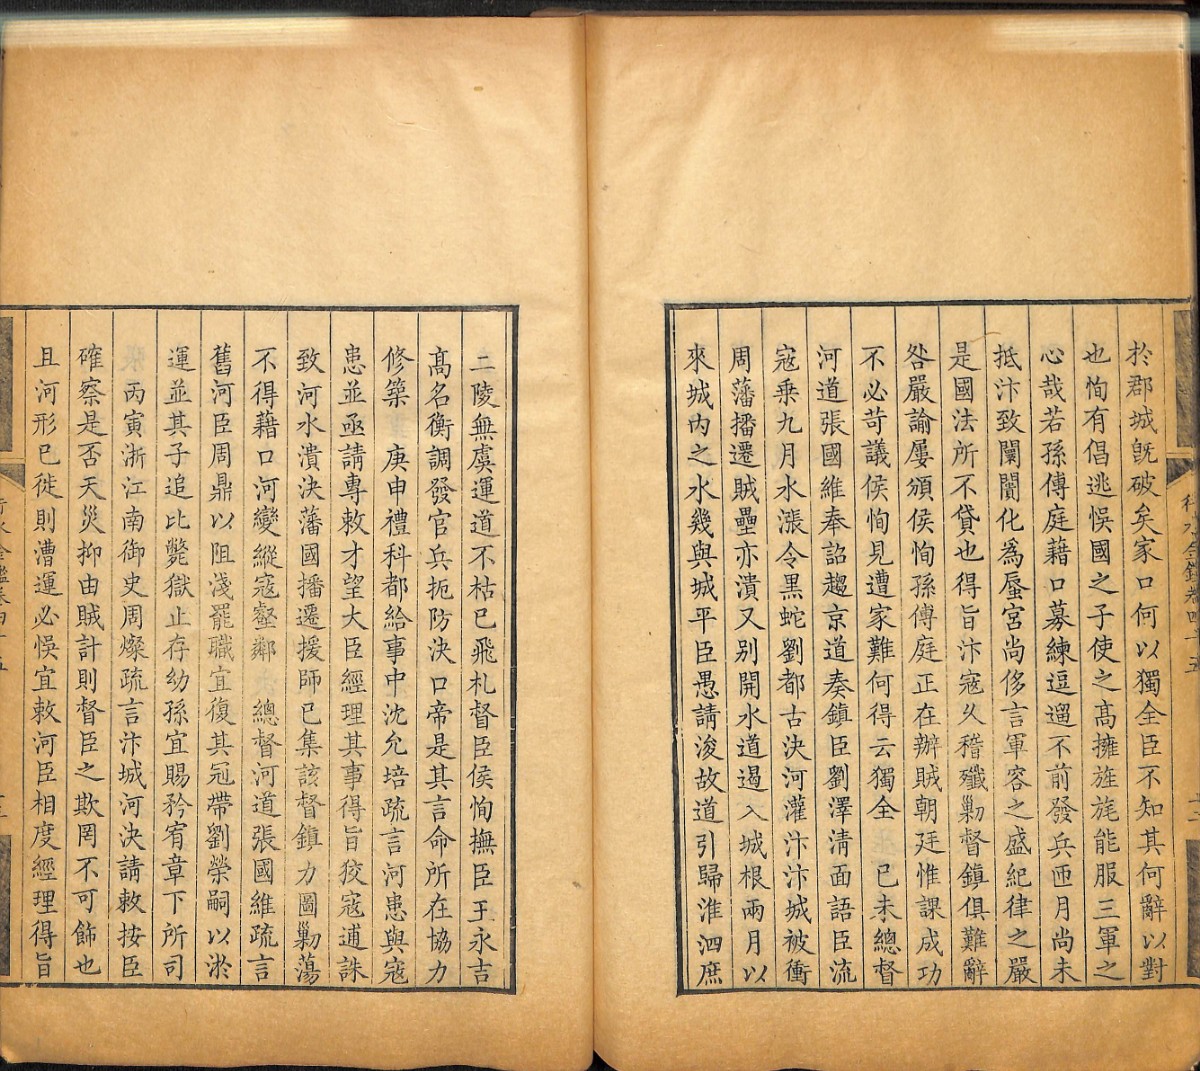 於郡城旣破矣家口何以獨全臣不知其何辭以對
也恂有倡逃悞國之子使之髙擁旌旄能服三軍之
心哉若孫傳庭藉口募練逗遛不前發兵匝月尚未
抵汴致闤闠化爲蜃宮尚侈言軍容之盛紀律之嚴
是國法所不貸也得旨汴寇久稽殲勦督鎭俱難辭
咎嚴諭屢頒侯恂孫傳庭正在辦賊朝廷惟課成功
不必苛議侯恂見遭家難何得云獨全 已未總督
河道張國維奉詔趨京道奏鎭臣劉澤淸面語臣流
寇乗九月水漲令黑蛇劉都古決河灌汴汴城被衝
周藩播遷賊壘亦潰又别開水道遏入城根兩月以
來城內之水幾與城平臣愚請浚故道引歸淮泗庶
行水金鑑卷四十五
二陵無虞運道不枯已飛札督臣侯恂撫臣王永吉
髙名衡調發官兵扼防決口帝是其言命所在協力
修築 庚申禮科都給事中沈允培疏言河患與寇
患並亟請專敕才望大臣經理其事得旨狡寇逋誅
致河水潰決藩國播遷援師已集該督鎭力圖勦蕩
不得藉口河變縱寇壑鄰 總督河道張國維疏言
舊河臣周鼎以阻淺罷職宜復其冠帶劉榮嗣以淤
運並其子追比斃獄止存幼孫宜賜矜宥章下所司
丙寅浙江南御史周燦疏言汴城河決請敕按臣
確察是否天災抑由賊計則督臣之欺罔不可飾也
且河形已徙則漕運必悞宜敕河臣相度經理得旨
行水金鑑卷四十五